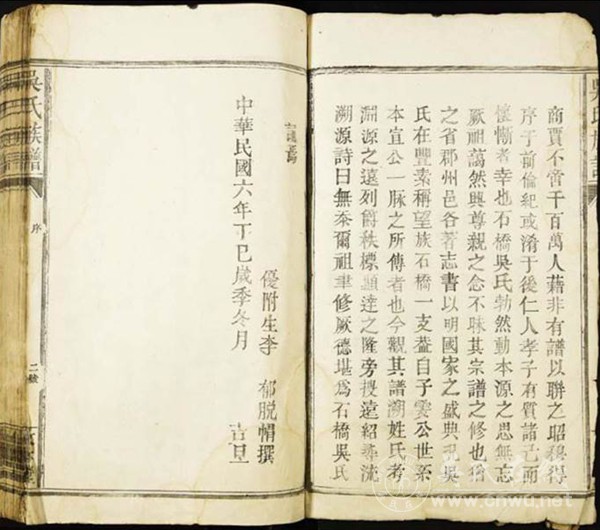 商賈不啻千百萬人藉非有譜以聯之昭穆得
序于前倫紀或淆于後仁人孝子有質諸己而
懷慚者幸也石橋吳氏勃然動本源之思無忘
厥祖藹然興尊親之念不昧其宗譜之修也猶
之省郡州邑各著志書以明國家之盛典況吳
氏在豐素稱望族石橋一支蓋自子雲公世系
本宣公一脉之所傳者也今觀其譜溯姓氏考
淵源之遠列爵秩標顯達之隆旁搜遠紹尋流
溯源詩曰無忝爾祖聿修厥德堪為石橋吳氏
中華民國六年丁巳歲季冬月
優附生李 郁脱帽撰
吉旦
吳氏族譜
序
二號
www.cnwu.net